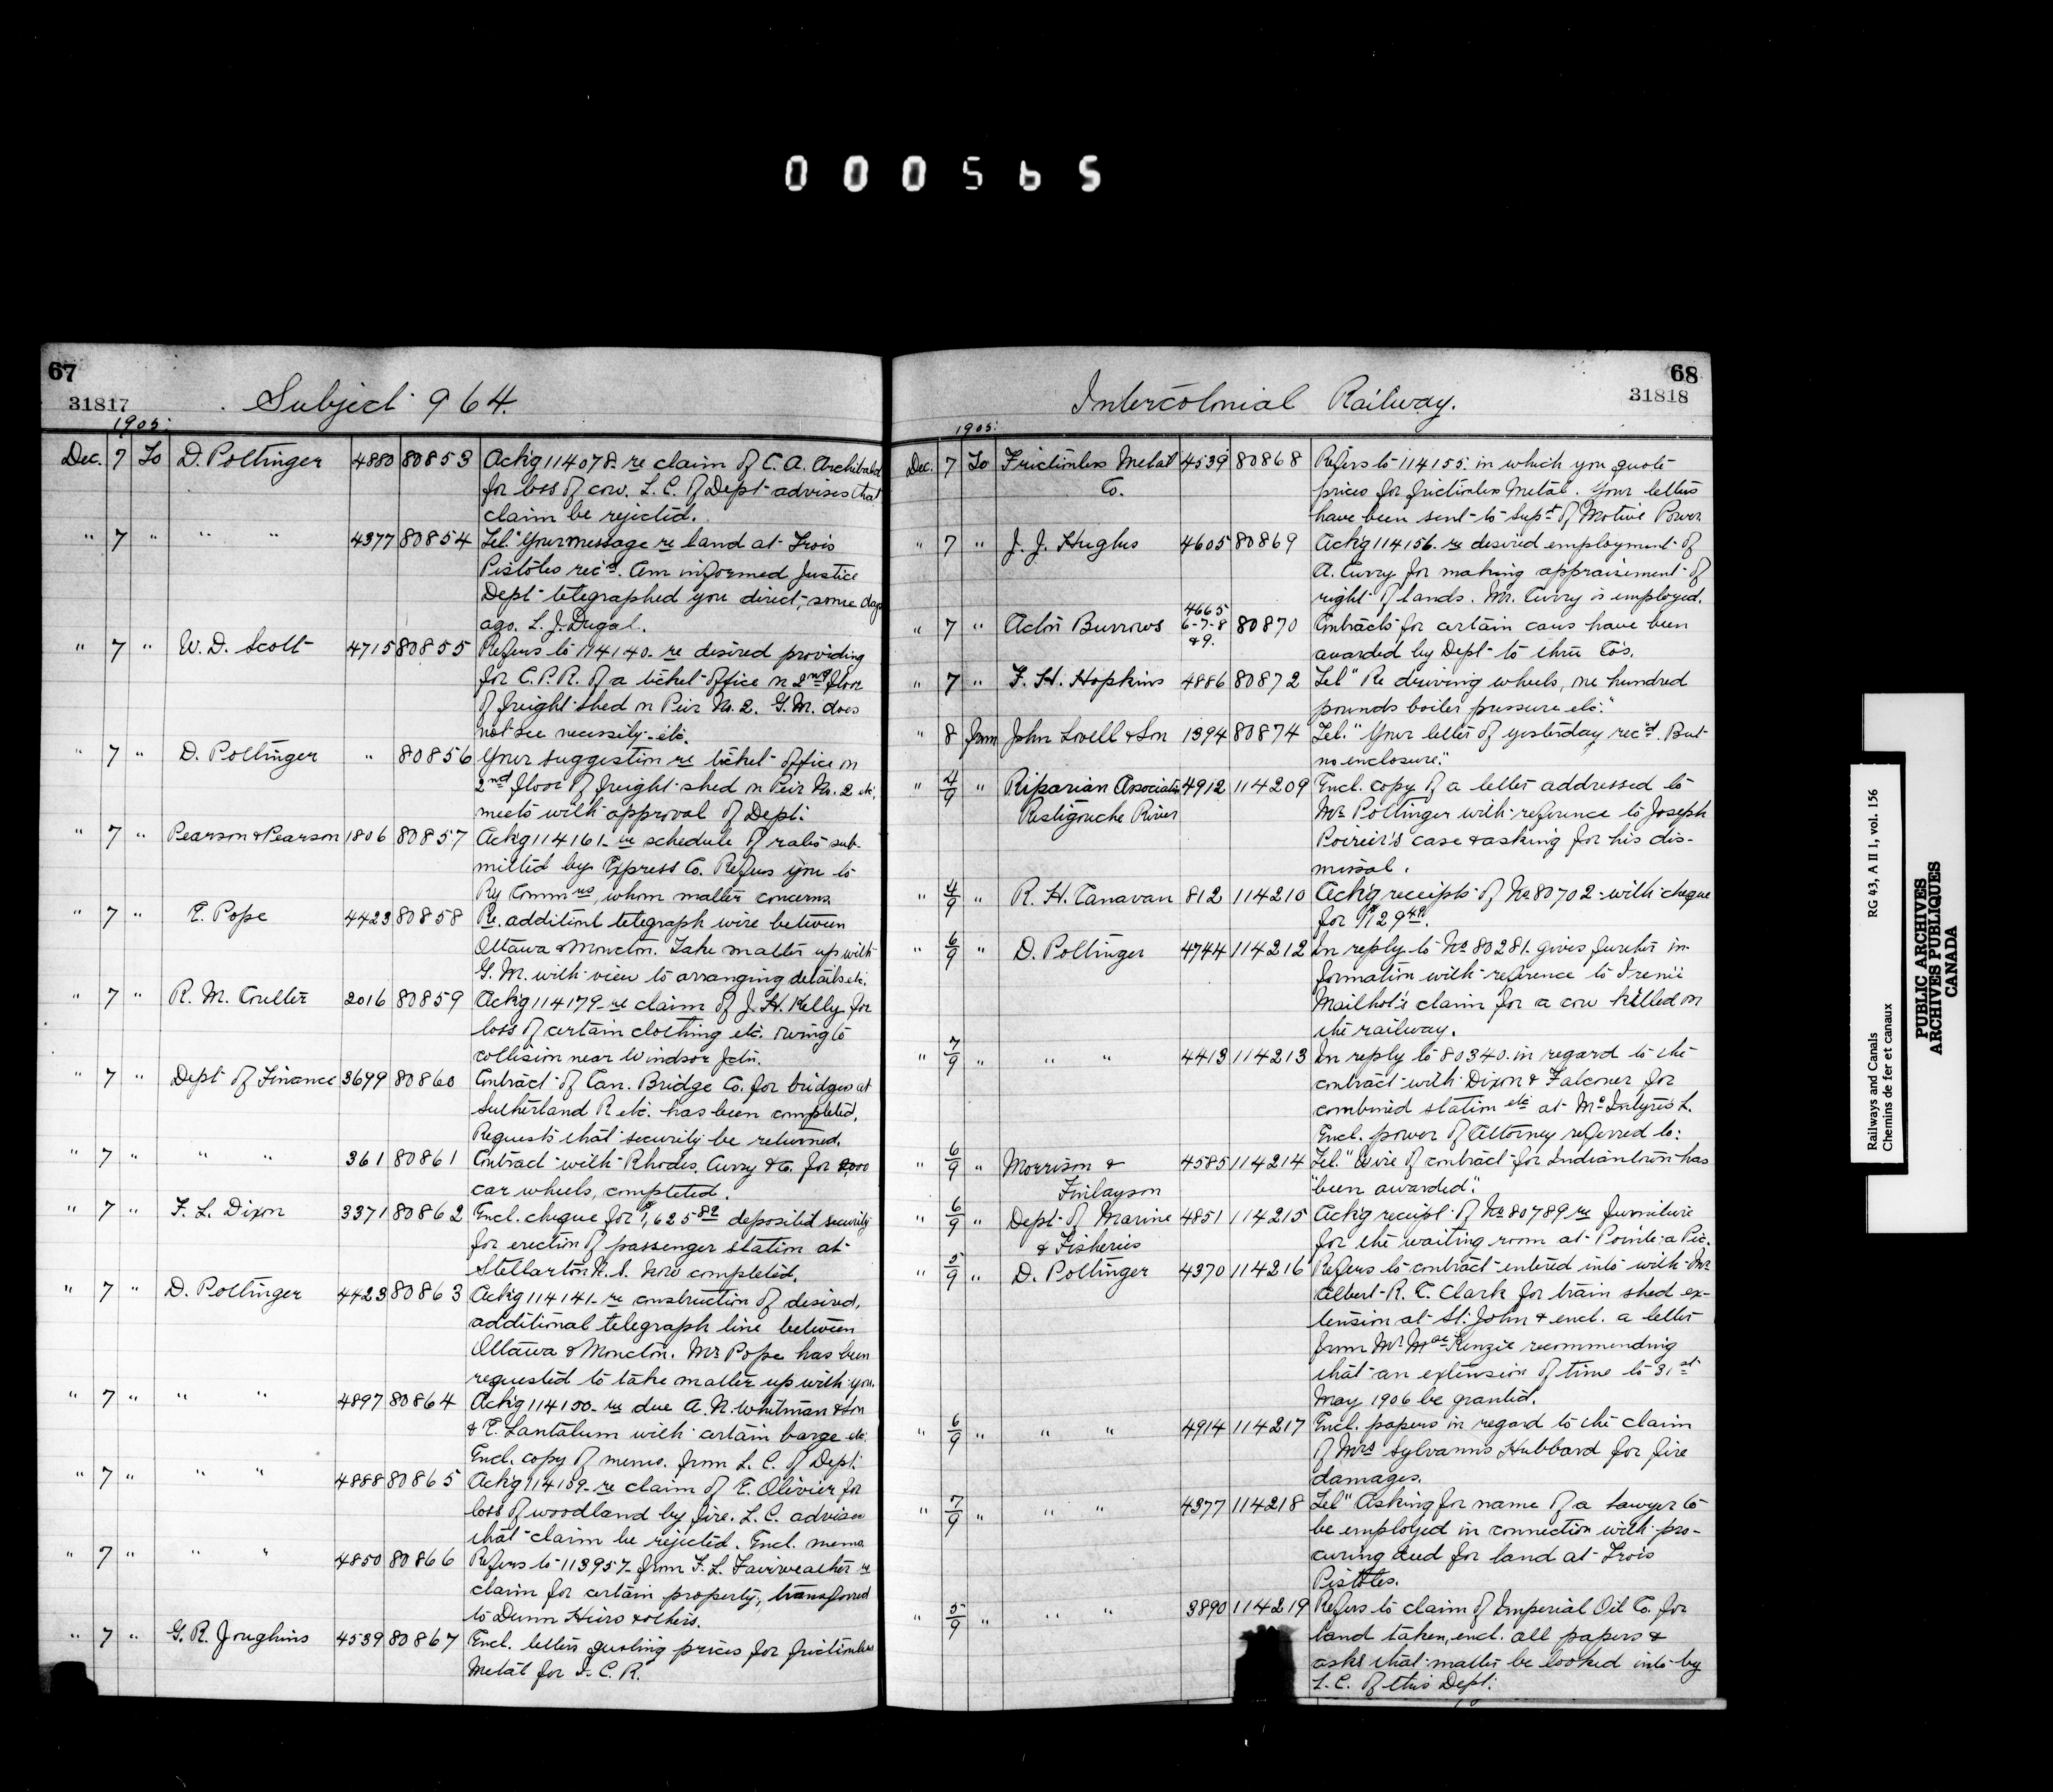 000565
67
31817
Subject 964.
1905.
Dec. 7 To D. Pottinger 4880 80853 Ackg 114078. re claim of C. A. Archibald
for loss of cow. L. C. of Dept advises that
claim be rejected.
" 7 " " " 4377 80854 Tel. "Your message re land at Trois
Pistoles rec'd. Am informed Justice
Dept telegraphed you direct some days
ago. L. J. Dugal.
" 7 " W. D. Scott 4715 80855 Refers to 114140 - re desired providing
for C.P.R. of a ticket office on 2nd floor
of freight shed on Pier No. 2. G.M. does
not see necessity - etc.
" 7 " D. Pottinger " 80856 Your suggestion re ticket office on
2nd floor of freight shed on Pier No. 2 etc.
meets with approval of Dept.
" 7 " Pearson & Pearson 1806 80857 Ackg 114161 - re schedule of rates sub-
mitted by Express Co. Refers you to
Ry Commrs, whom matter concerns
" 7 " E. Pope 4423 80858 Re. additional telegraph wire between
Ottawa & Moncton. Take matter up with
G. M. with view to arranging details etc.
" 7 " R. M. Coulter 2016 80859 Ackg 114179 - re claim of J. H. Kelly for
loss of certain clothing etc. owing to
collision near Windsor Jctn.
" 7 " Dept of Finance 3699 80860 Contract of Can. Bridge Co. for bridges at
Sutherland R etc. has been completed.
Requests that security be returned.
" 7 " " " 361 80861 Contract with Rhodes, Curry & Co. for 2,000
car wheels, completed.
" 7 " F. L. Dixon 3371 80862 Encl. cheque for $1,625 82 deposited security
for erection of passenger station at
Stellarton N. S. now completed.
" 7 " D. Pottinger 4423 80863 Ackg 114141 - re construction of desired,
additional telegraph line between
Ottawa & Moncton. Mr Pope has been
requested to take matter up with you.
" 7 " " " 4897 80864 Ackg 114100 - re due A. N. Whitman & Son
& E. Lantalum with certain barge etc.
Encl. copy of memo. from L. C. of Dept.
" 7 " " " 4888 80865 Ackg 114109 - re claim of E. Olivier for
loss of woodland by fire. L. C. advises
that claim be rejected. Encl. memo
" 7 " " " 4850 80866 Refers to 113957 - from F. L. Fairweather re
claim for certain property, transferred
to Dunn Heirs & others.
" 7 " G. R. Joughins 4539 80867 Encl. letters quoting prices for frictionless
Metal for I. C. R.
68
31818
Intercolonial Railway.
1905.
Dec. 7 To Frictionless Metal 4539 80868 Refers to 114155. in which you quote
Co. prices for frictionless Metal. Your letters
have been sent to Supt of Motive Power
" 7 " J. J. Hughes 4605 80869 Ackg 114156 - re desired employment of
A. Curry for making appraisement of
right of lands. Mr. Curry is employed.
" 7 " Acton Burrows 4665 6-7-8 & 9. 80870 Contracts for certain cars have been
awarded by Dept to three Co's.
" 7 " F. H. Hopkins 4886 80872 Tel "Re driving wheels, one hundred
pounds boiler pressure etc."
" 8 from John Lovell & Son 1394 80874 Tel. "Your letter of yesterday rec'd. But
no enclosure."
" 4/9 " Riparian Association 4912 114209 Encl. copy of a letter addressed to
Restigouche River Mr. Pottinger with reference to Joseph
Poirier's case & asking for his dis-
missal.
" 4/9 " R. H. Canavan 812 114210 Ackg receipt of No 80702 - with cheque
for $129 49.
" 6/9 " D. Pottinger 4744 114212 In reply to No 80281. gives further in-
formation with reference to Irenie
Mailhot's claim for a cow killed on
the railway.
" 7/9 " " " 4413 114213 In reply to 80340. in regard to the
contract with Dixon & Falconer for
combined station etc at McIntyre's L.
Encl. power of Attorney referred to.
" 6/9 " Morrison & 4585 114214 Tel. "Wire if contract for Indiantown has
Finlayson "been awarded".
" 6/9 " Dept of Marine 4851 114215 Ackg receipt of No 80789 re furniture
& Fisheries for the waiting room at Pointe a Pic.
" 5/9 " D. Pottinger 4370 114216 Refers to contract entered into with Mr
Albert R. C. Clark for train shed ex-
tension at St. John & encl. a letter
from Mr MacKenzie recommending
that an extension of time to 31st
May 1906 be granted.
" 6/9 " " " 4914 114217 Encl. papers in regard to the claim
of Mrs Sylvanus Hubbard for fire
damages.
" 7/9 " " " 4377 114218 Tel "Asking for name of a Lawyer to
be employed in connection with pro-
curing deed for land at Trois
Pistoles.
" 5/9 " " " 3890 114219 Refers to claim of Imperial Oil Co. for
land taken, encl. all papers &
asks that matter be looked into by
L. C. of this Dept.
Railways and Canals RG 43, A II 1, vol. 156
Chemins de fer et canaux
PUBLIC ARCHIVES
ARCHIVES PUBLIQUES
CANADA